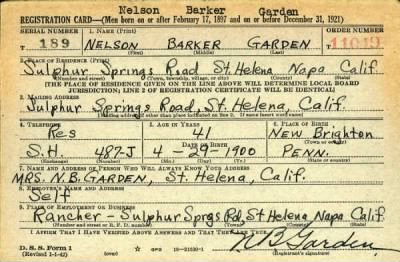 Nelson Barker Garden
REGISTRATION CARD—(Men born on or after February 17, 1897 and on or before December 31, 1921)
SERIAL NUMBER 1. NAME (Print) ORDER NUMBER
189 NELSON BARKER GARDEN 11019
(First) (Middle) (Last)
2. PLACE OF RESIDENCE (Print)
Sulphur Springs Road St. Helena Napa Calif.
(Number and street) (Town, township, village, or city) (County) (State)
[THE PLACE OF RESIDENCE GIVEN ON THE LINE ABOVE WILL DETERMINE LOCAL BOARD
JURISDICTION; LINE 2 OF REGISTRATION CERTIFICATE WILL BE IDENTICAL]
3. MAILING ADDRESS
Sulphur Springs Road, St. Helena, Calif.
[Mailing address if other than place indicated on line 2. If same insert word same]
4. TELEPHONE 5. AGE IN YEARS 6. PLACE OF BIRTH
Res 41 New Brighton
DATE OF BIRTH (Town or county)
S.H. 487-J 4-29-1900 PENN.
(Exchange) (Number) (Mo.) (Day) (Yr.) (State or country)
7. NAME AND ADDRESS OF PERSON WHO WILL ALWAYS KNOW YOUR ADDRESS
MRS. N.B. GARDEN, St. Helena, Calif.
8. EMPLOYER'S NAME AND ADDRESS
Self
9. PLACE OF EMPLOYMENT OR BUSINESS
Rancher - Sulphur Sprgs Rd, St Helena Napa Calif.
(Number and street or R. F. D. number) (Town) (County) (State)
I AFFIRM THAT I HAVE VERIFIED ABOVE ANSWERS AND THAT THEY ARE TRUE.
D. S. S. Form 1
(Revised 1-1-42) (over) GPO 16—21630-1
N B Garden